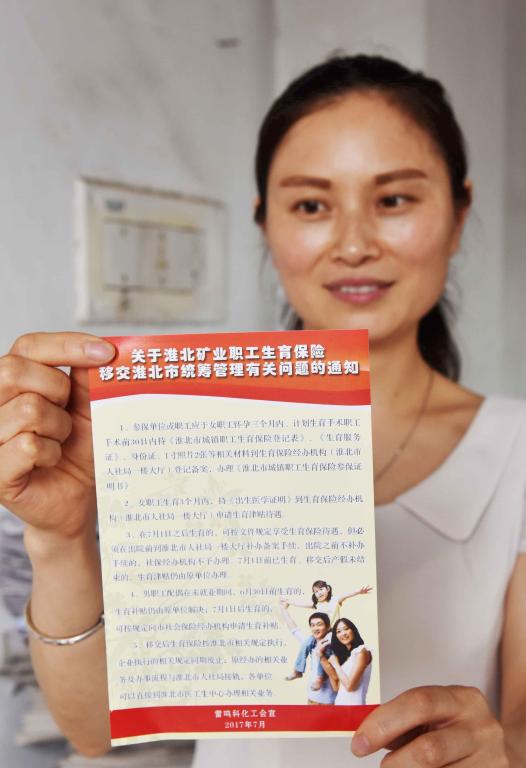 关于淮北矿业职工生育保险
移交淮北市统筹管理有关问题的通知
1、参保单位或职工应于女职工怀孕三个月内、计划生育手术职工
手术前30日内持《淮北市城镇职工生育保险登记表》、《生育服务
证》、身份证、1寸照片2张等相关材料到生育保险经办机构（淮北市
人社局一楼大厅）登记备案，办理《淮北市城镇职工生育保险参保证
明书》
2、女职工生育3个月内，持《出生医学证明》到生育保险经办机
构（淮北市人社局一楼大厅）申请生育津贴待遇。
3、在7月1日之后生育的，可按文件规定享受生育保险待遇，但必
须在出院前到淮北市人社局一楼大厅补办备案手续，出院之前不补办
手续的，社保经办机构不予办理。7月1日前已生育、移交后产假未结
束的，生育津贴仍由原单位办理。
4、男职工配偶在未就业期间，6月30日前生育的，
生育补贴仍由原单位解决；7月1日后生育的，
可按规定向市社会保险经办机构申请生育补贴。
5、移交后生育保险按淮北市相关规定执行，
企业执行的相关规定同期废止。原经办的相关业
务及办事流程与淮北市人社局接轨，各单位
可以直接到淮北市医工生中心办理相关业务。
雷鸣科化工会宣
2017年7月